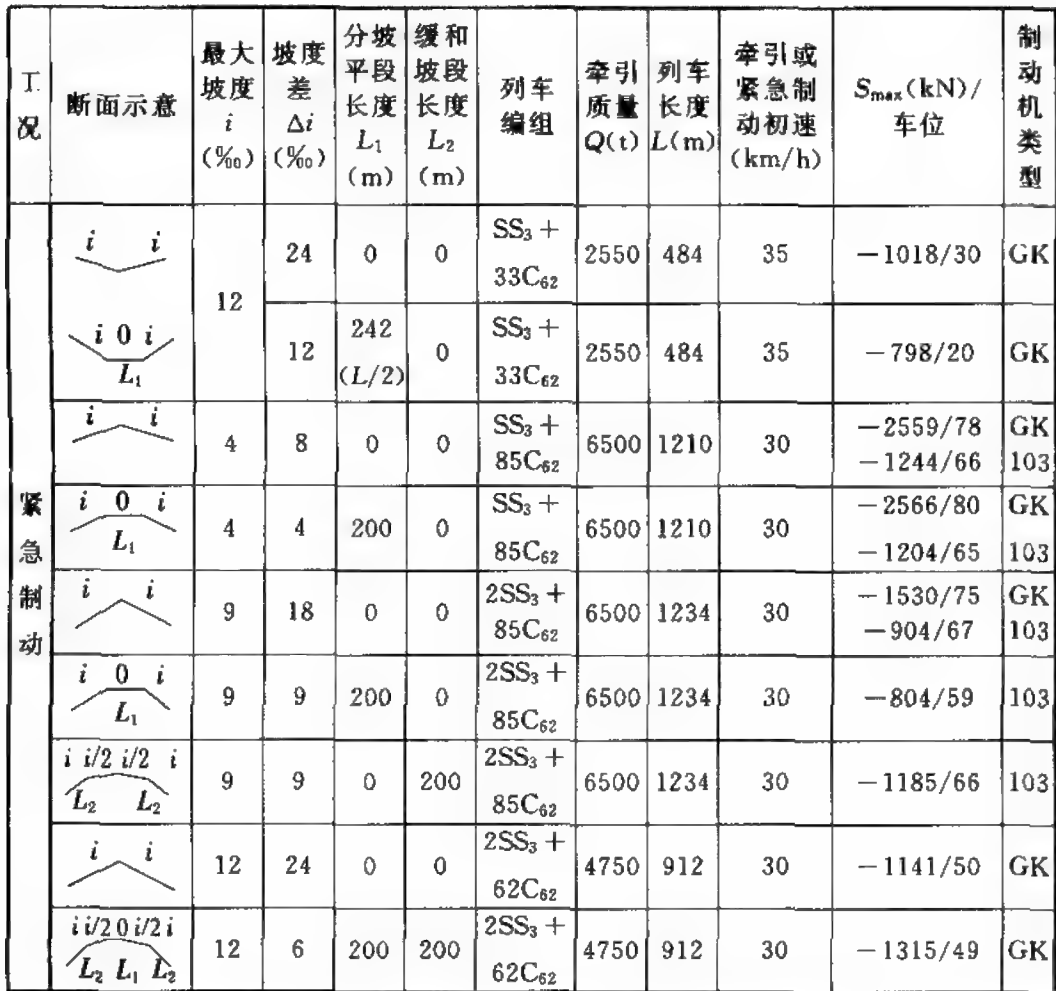 工况 断面示意 最大坡度 i (‰) 坡度差 Δi (‰) 分坡平段长度 L₁ (m) 缓和坡段长度 L₂ (m) 列车编组 牵引质量 Q(t) 列车长度 L(m) 牵引或紧急制动初速 (km/h) Smax(kN)/车位 制动机类型
紧急制动
i i 12 24 0 0 SS₃+33C₆₂ 2550 484 35 −1018/30 GK
i 0 i L₁ 12 242 (L/2) 0 SS₃+33C₆₂ 2550 484 35 −798/20 GK
i i 4 8 0 0 SS₃+85C₆₂ 6500 1210 30 −2559/78 GK
−1244/66 103
i 0 i L₁ 4 4 200 0 SS₃+85C₆₂ 6500 1210 30 −2566/80 GK
−1204/65 103
i i 9 18 0 0 2SS₃+85C₆₂ 6500 1234 30 −1530/75 GK
−904/67 103
i 0 i L₁ 9 9 200 0 2SS₃+85C₆₂ 6500 1234 30 −804/59 103
i i/2 i/2 i L₂ L₂ 9 9 0 200 2SS₃+85C₆₂ 6500 1234 30 −1185/66 103
i i 12 24 0 0 2SS₃+62C₆₂ 4750 912 30 −1141/50 GK
i i/2 0 i/2 i L₂ L₁ L₂ 12 6 200 200 2SS₃+62C₆₂ 4750 912 30 −1315/49 GK